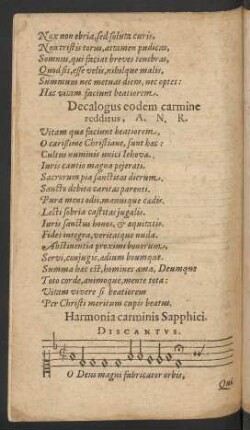 Nox non ebria, sed soluta curis,
Non tristis torus, attamen pudicus,
Somnus, qui faciat breves tenebras,
Quod sis, esse velis, nihilque malis,
Summum nec metuas diem, nec optes:
Hæc vitam faciunt beatiorem.
Decalogus eodem carmine
redditus, A. N. R.
Vitam quæ faciunt beatiorem,
O carissime Christiane, sunt hæc:
Cultus numinis unici Iehova.
Iuris cautio magna pejerati.
Sacrorum pia sanctitas dierum.
Sancto debita caritas parenti.
Pura mens odii, manusque cædis.
Lecti sobria castitas jugalis.
Iuris sanctus honos, & æquitatis.
Fides integra, veritasque nuda.
Abstinentia proximi bonorum,
Servi, conjugis, ædium boumque.
Summa hæc est, homines ama, Deumque
Toto corde, animoque, mente tota:
Vitam vivere si beatiorem
Per Christi meritum cupis beatus.
Harmonia carminis Sapphici.
DISCANTVS.
O Deus magni fabricator orbis,
Qui